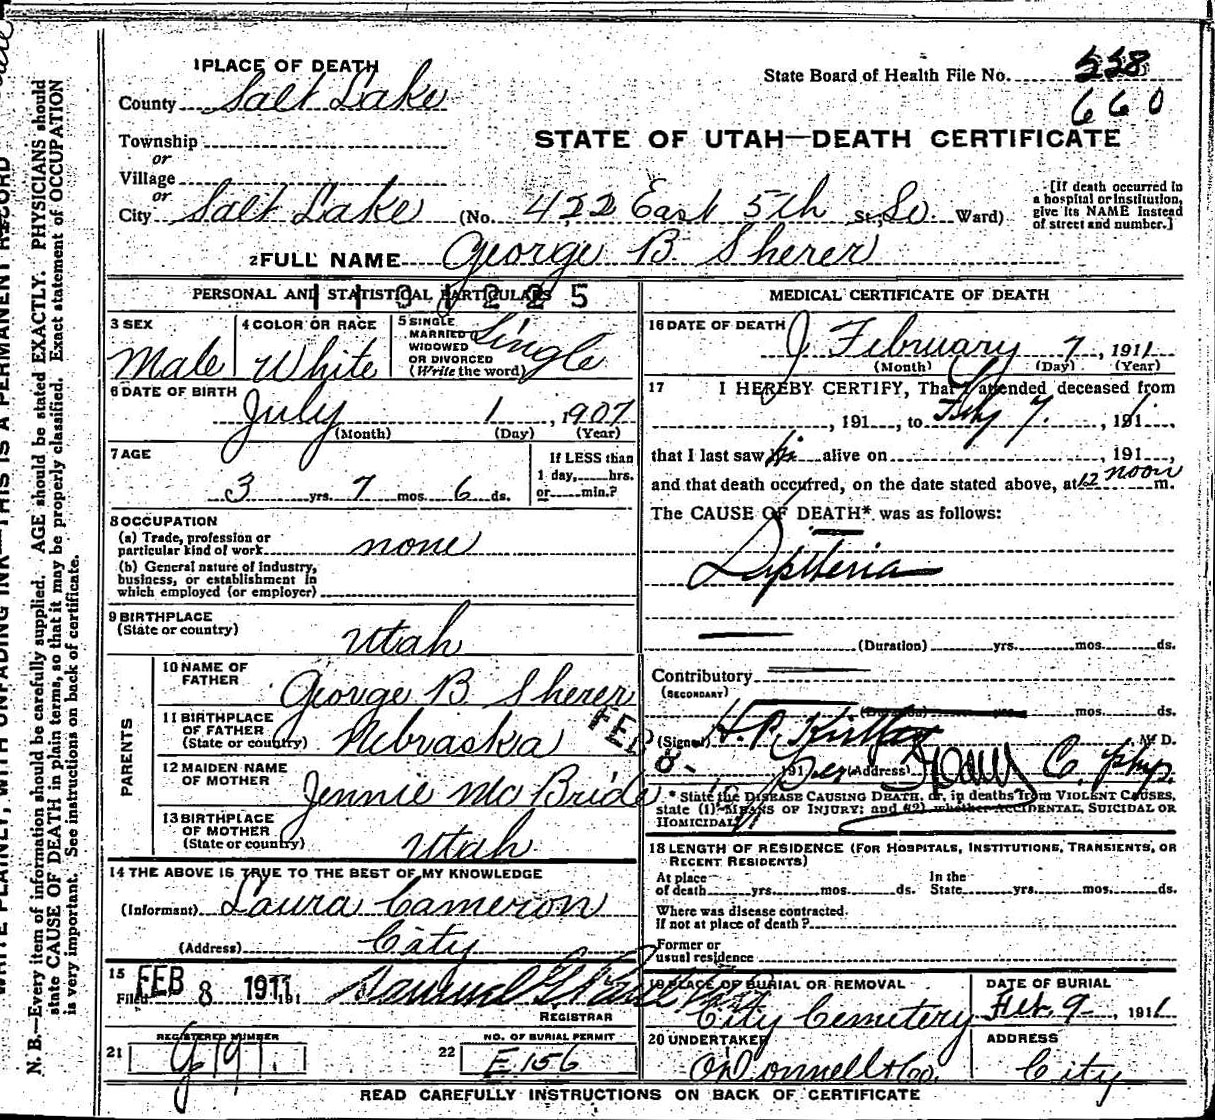 1 PLACE OF DEATH
County Salt Lake
State Board of Health File No. 558
660
Township
or
Village
or
STATE OF UTAH—DEATH CERTIFICATE
City Salt Lake (No. 422 East 5th St., So. Ward)
[If death occurred in
a hospital or institution,
give its NAME instead
of street and number.]
2 FULL NAME George B. Sherer
PERSONAL AND STATISTICAL PARTICULARS
1 1 0 1 2 2 5
3 SEX
Male
4 COLOR OR RACE
White
5 SINGLE
MARRIED
WIDOWED
OR DIVORCED
(Write the word)
Single
6 DATE OF BIRTH
July 1, 1907
(Month) (Day) (Year)
7 AGE
3 yrs. 7 mos. 6 ds.
If LESS than
1 day, hrs.
or min.?
8 OCCUPATION
(a) Trade, profession or
particular kind of work none
(b) General nature of industry,
business, or establishment in
which employed (or employer)
9 BIRTHPLACE
(State or country)
Utah
PARENTS
10 NAME OF
FATHER
George B. Sherer
11 BIRTHPLACE
OF FATHER
(State or country)
Nebraska
12 MAIDEN NAME
OF MOTHER
Jennie McBride
13 BIRTHPLACE
OF MOTHER
(State or country)
Utah
14 THE ABOVE IS TRUE TO THE BEST OF MY KNOWLEDGE
(Informant) Laura Cameron
(Address) City
15
Filed FEB 8 1911 191
Samuel G.
REGISTRAR
REGISTERED NUMBER
21 g 191.
NO. OF BURIAL PERMIT
22 E.156
MEDICAL CERTIFICATE OF DEATH
16 DATE OF DEATH
February 7, 1911
(Month) (Day) (Year)
17 I HEREBY CERTIFY, That I attended deceased from
, 191 , to Feby 7. , 191 ,
that I last saw h alive on , 191 ,
and that death occurred, on the date stated above, at 12 noon m.
The CAUSE OF DEATH* was as follows:
Diptheria
(Duration) yrs. mos. ds.
Contributory
(SECONDARY)
(Duration) yrs. mos. ds.
(Signed) H. P. M. D.
FEB 8- 191 per (Address) C. Phys.
* State the DISEASE CAUSING DEATH, or, in deaths from VIOLENT CAUSES,
state (1) MEANS OF INJURY; and (2) whether ACCIDENTAL, SUICIDAL OR
HOMICIDAL
18 LENGTH OF RESIDENCE (FOR HOSPITALS, INSTITUTIONS, TRANSIENTS, OR
RECENT RESIDENTS)
At place
of death yrs. mos. ds.
In the
State yrs. mos. ds.
Where was disease contracted.
If not at place of death?
Former or
usual residence
19 PLACE OF BURIAL OR REMOVAL
City Cemetery
DATE OF BURIAL
Feb. 9, 1911
20 UNDERTAKER
O'Donnell & Co.
ADDRESS
City
READ CAREFULLY INSTRUCTIONS ON BACK OF CERTIFICATE
WRITE PLAINLY, WITH UNFADING INK—THIS IS A PERMANENT RECORD
N. B.—Every item of information should be carefully supplied. AGE should be stated EXACTLY. PHYSICIANS should
state CAUSE OF DEATH in plain terms, so that it may be properly classified. Exact statement of OCCUPATION
is very important. See instructions on back of certificate.